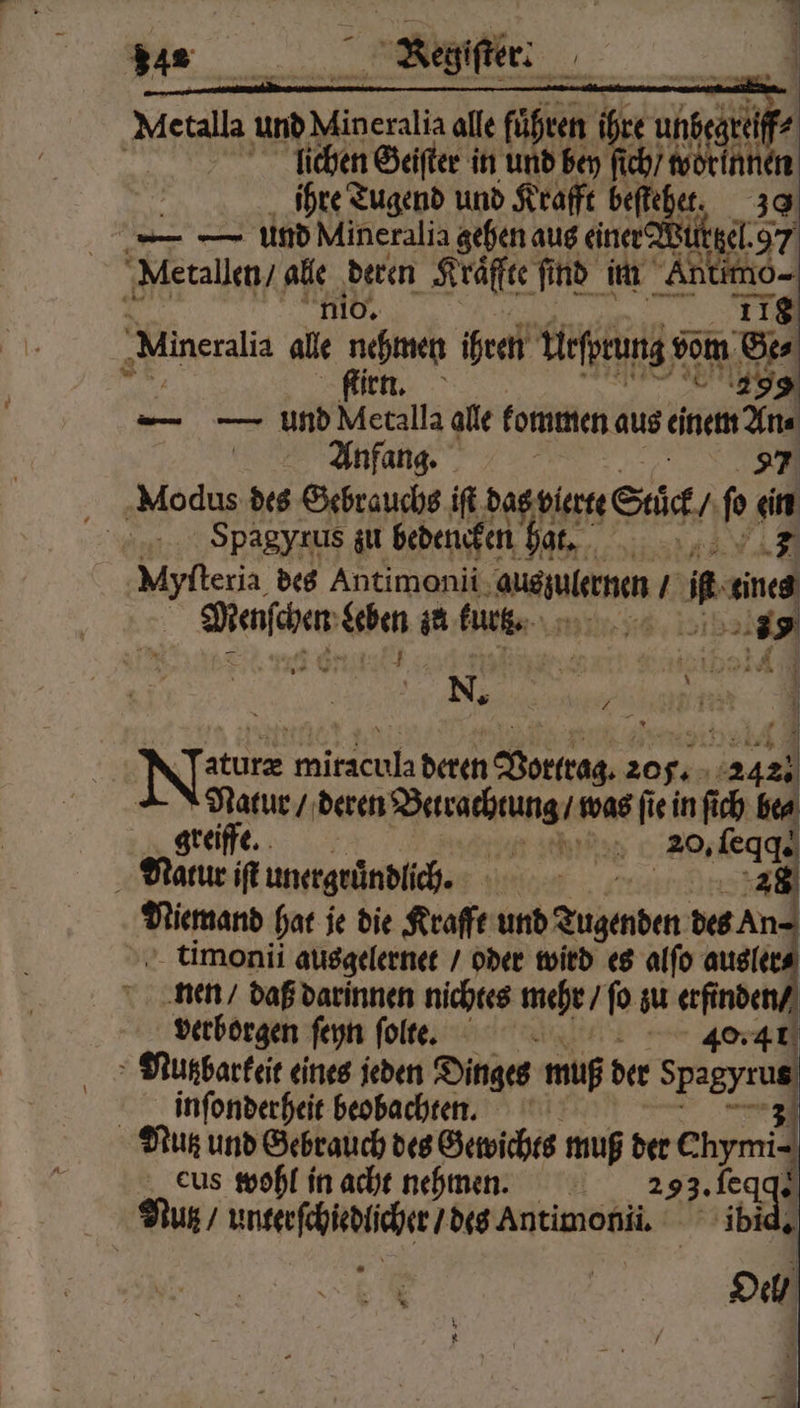 342 Regiſter.
Metalla und Mineralia alle fuͤhren ihre unbegreiff⸗
lichen Geiſter in und bey ſich / worinnen
ihre Tugend und Krafft beſtehet. 39
— — und Mineralia gehen aus einer Wurtzel. 97
Metallen / alle deren Kraͤffte ſind im Antimo-
nio. 118
Mineralia alle nehmen ihren Urſprung vom Ge⸗
ſtirn. 299
— — und Metalla alle kommen aus einem An⸗
Anfang. 97
Modus des Gebrauchs iſt das vierte Stuͤck / ſo ein
Spagyrus zu bedencken hat. 3
Myſteria des Antimonii auszulernen / iſt eines
Menſchen Leben zu kurtz. 39
N.
Naturæ miracula deren Vortrag. 205. 242.
Natur / deren Betrachtung / was ſie in ſich be⸗
greiffe. 20, ſeqq.
Natur iſt unergruͤndlich. 28
Niemand hat je die Krafft und Tugenden des An-
timonii ausgelernet / oder wird es alſo ausler⸗
nen / daß darinnen nichtes mehr / ſo zu erfinden /
verborgen ſeyn ſolte. 40. 41
Nutzbarkeit eines jeden Dinges muß der Spagyrus
inſonderheit beobachten. 3
Nutz und Gebrauch des Gewichts muß der Chymi-
cus wohl in acht nehmen. 293. ſeqq.
Nutz / unterſchiedlicher / des Antimonii. ibid.
Oel /